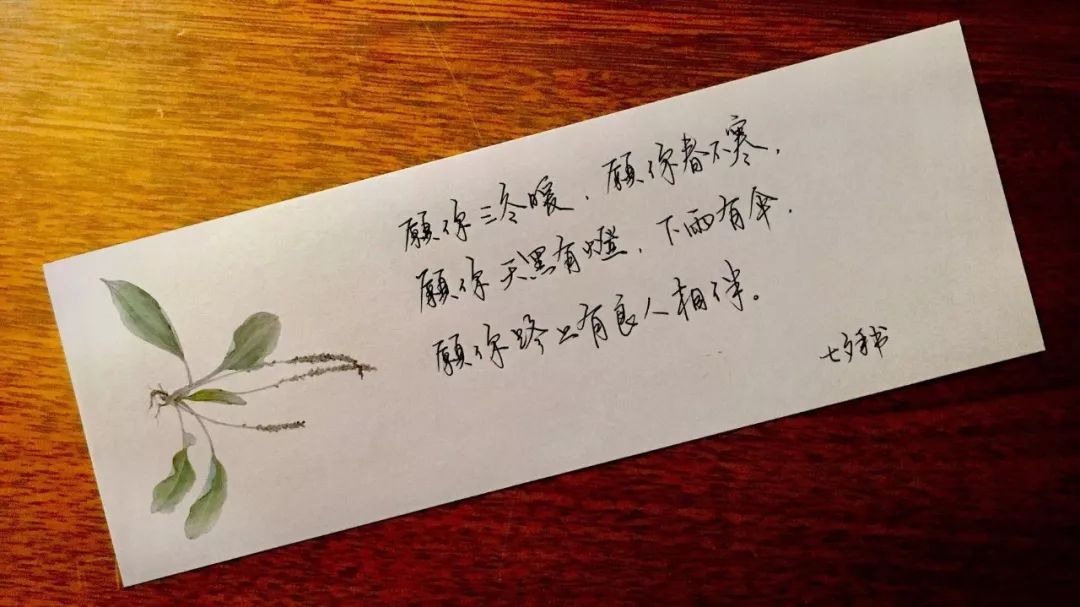 愿你三冬暖，愿你春不寒，
愿你天黑有燈，下雨有伞，
愿你路上有良人相伴。
七夕手书